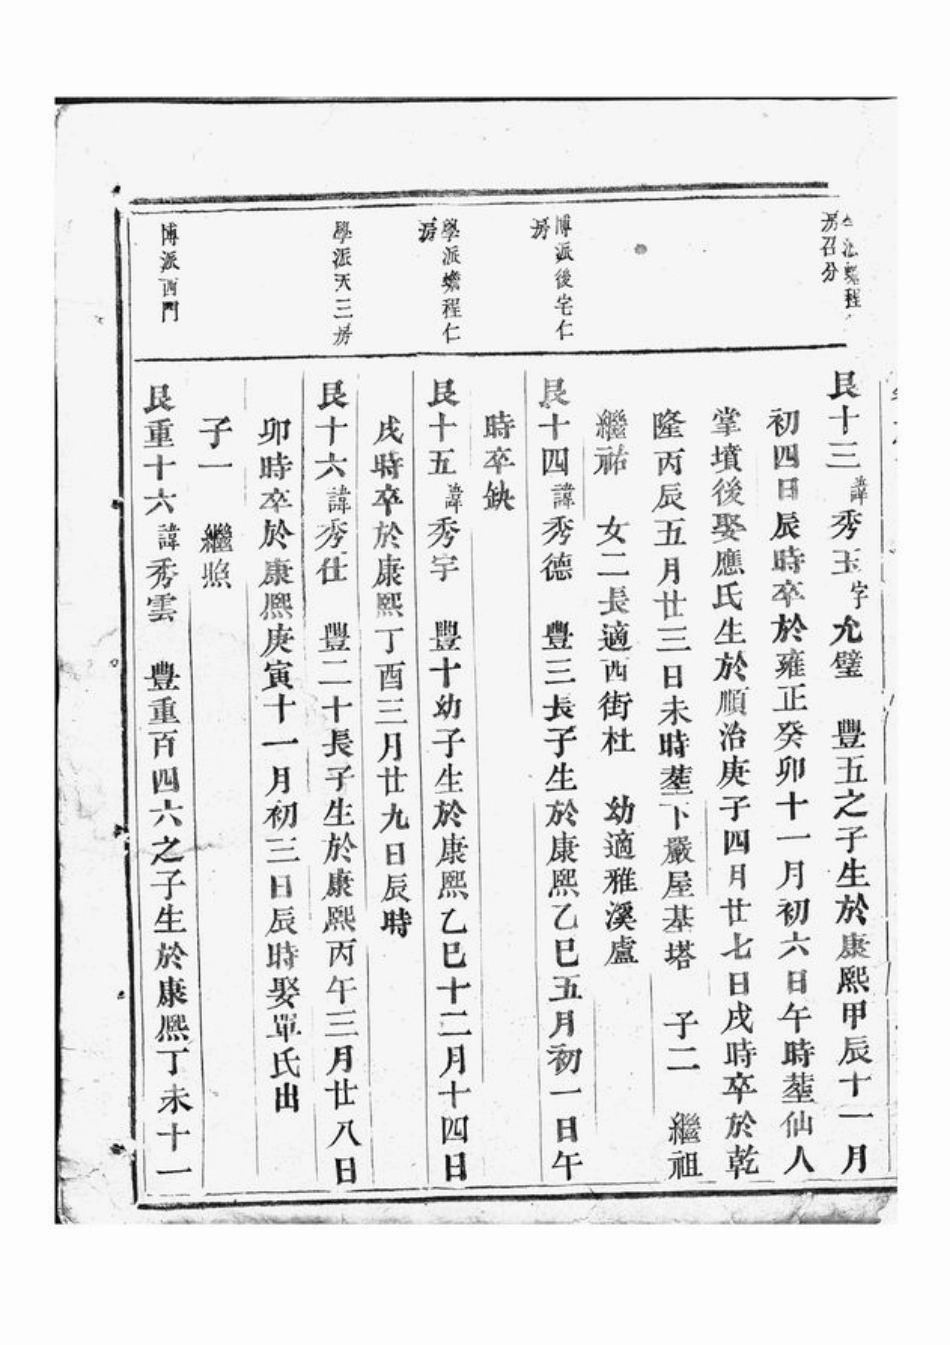 房召分
艮十三諱秀玉字允璧　豐五之子生於康熙甲辰十一月
初四日辰時卒於雍正癸卯十一月初六日午時塟仙人
掌墳後娶應氏生於順治庚子四月廿七日戌時卒於乾
隆丙辰五月廿三日未時塟下嚴屋基塔　子二　繼祖
繼祐　女二長適西街杜　幼適雅溪盧
博派後宅仁
房
艮十四諱秀德　豐三長子生於康熙乙巳五月初一日午
時卒缺
學派蟾程仁
房
艮十五諱秀宇　豐十幼子生於康熙乙巳十二月十四日
戌時卒於康熙丁酉三月廿九日辰時
學派天三房
艮十六諱秀仕　豐二十長子生於康熙丙午三月廿八日
卯時卒於康熙庚寅十一月初三日辰時娶單氏出
子一　繼照
博派西門
艮重十六諱秀雲　豐重百四六之子生於康熙丁未十一